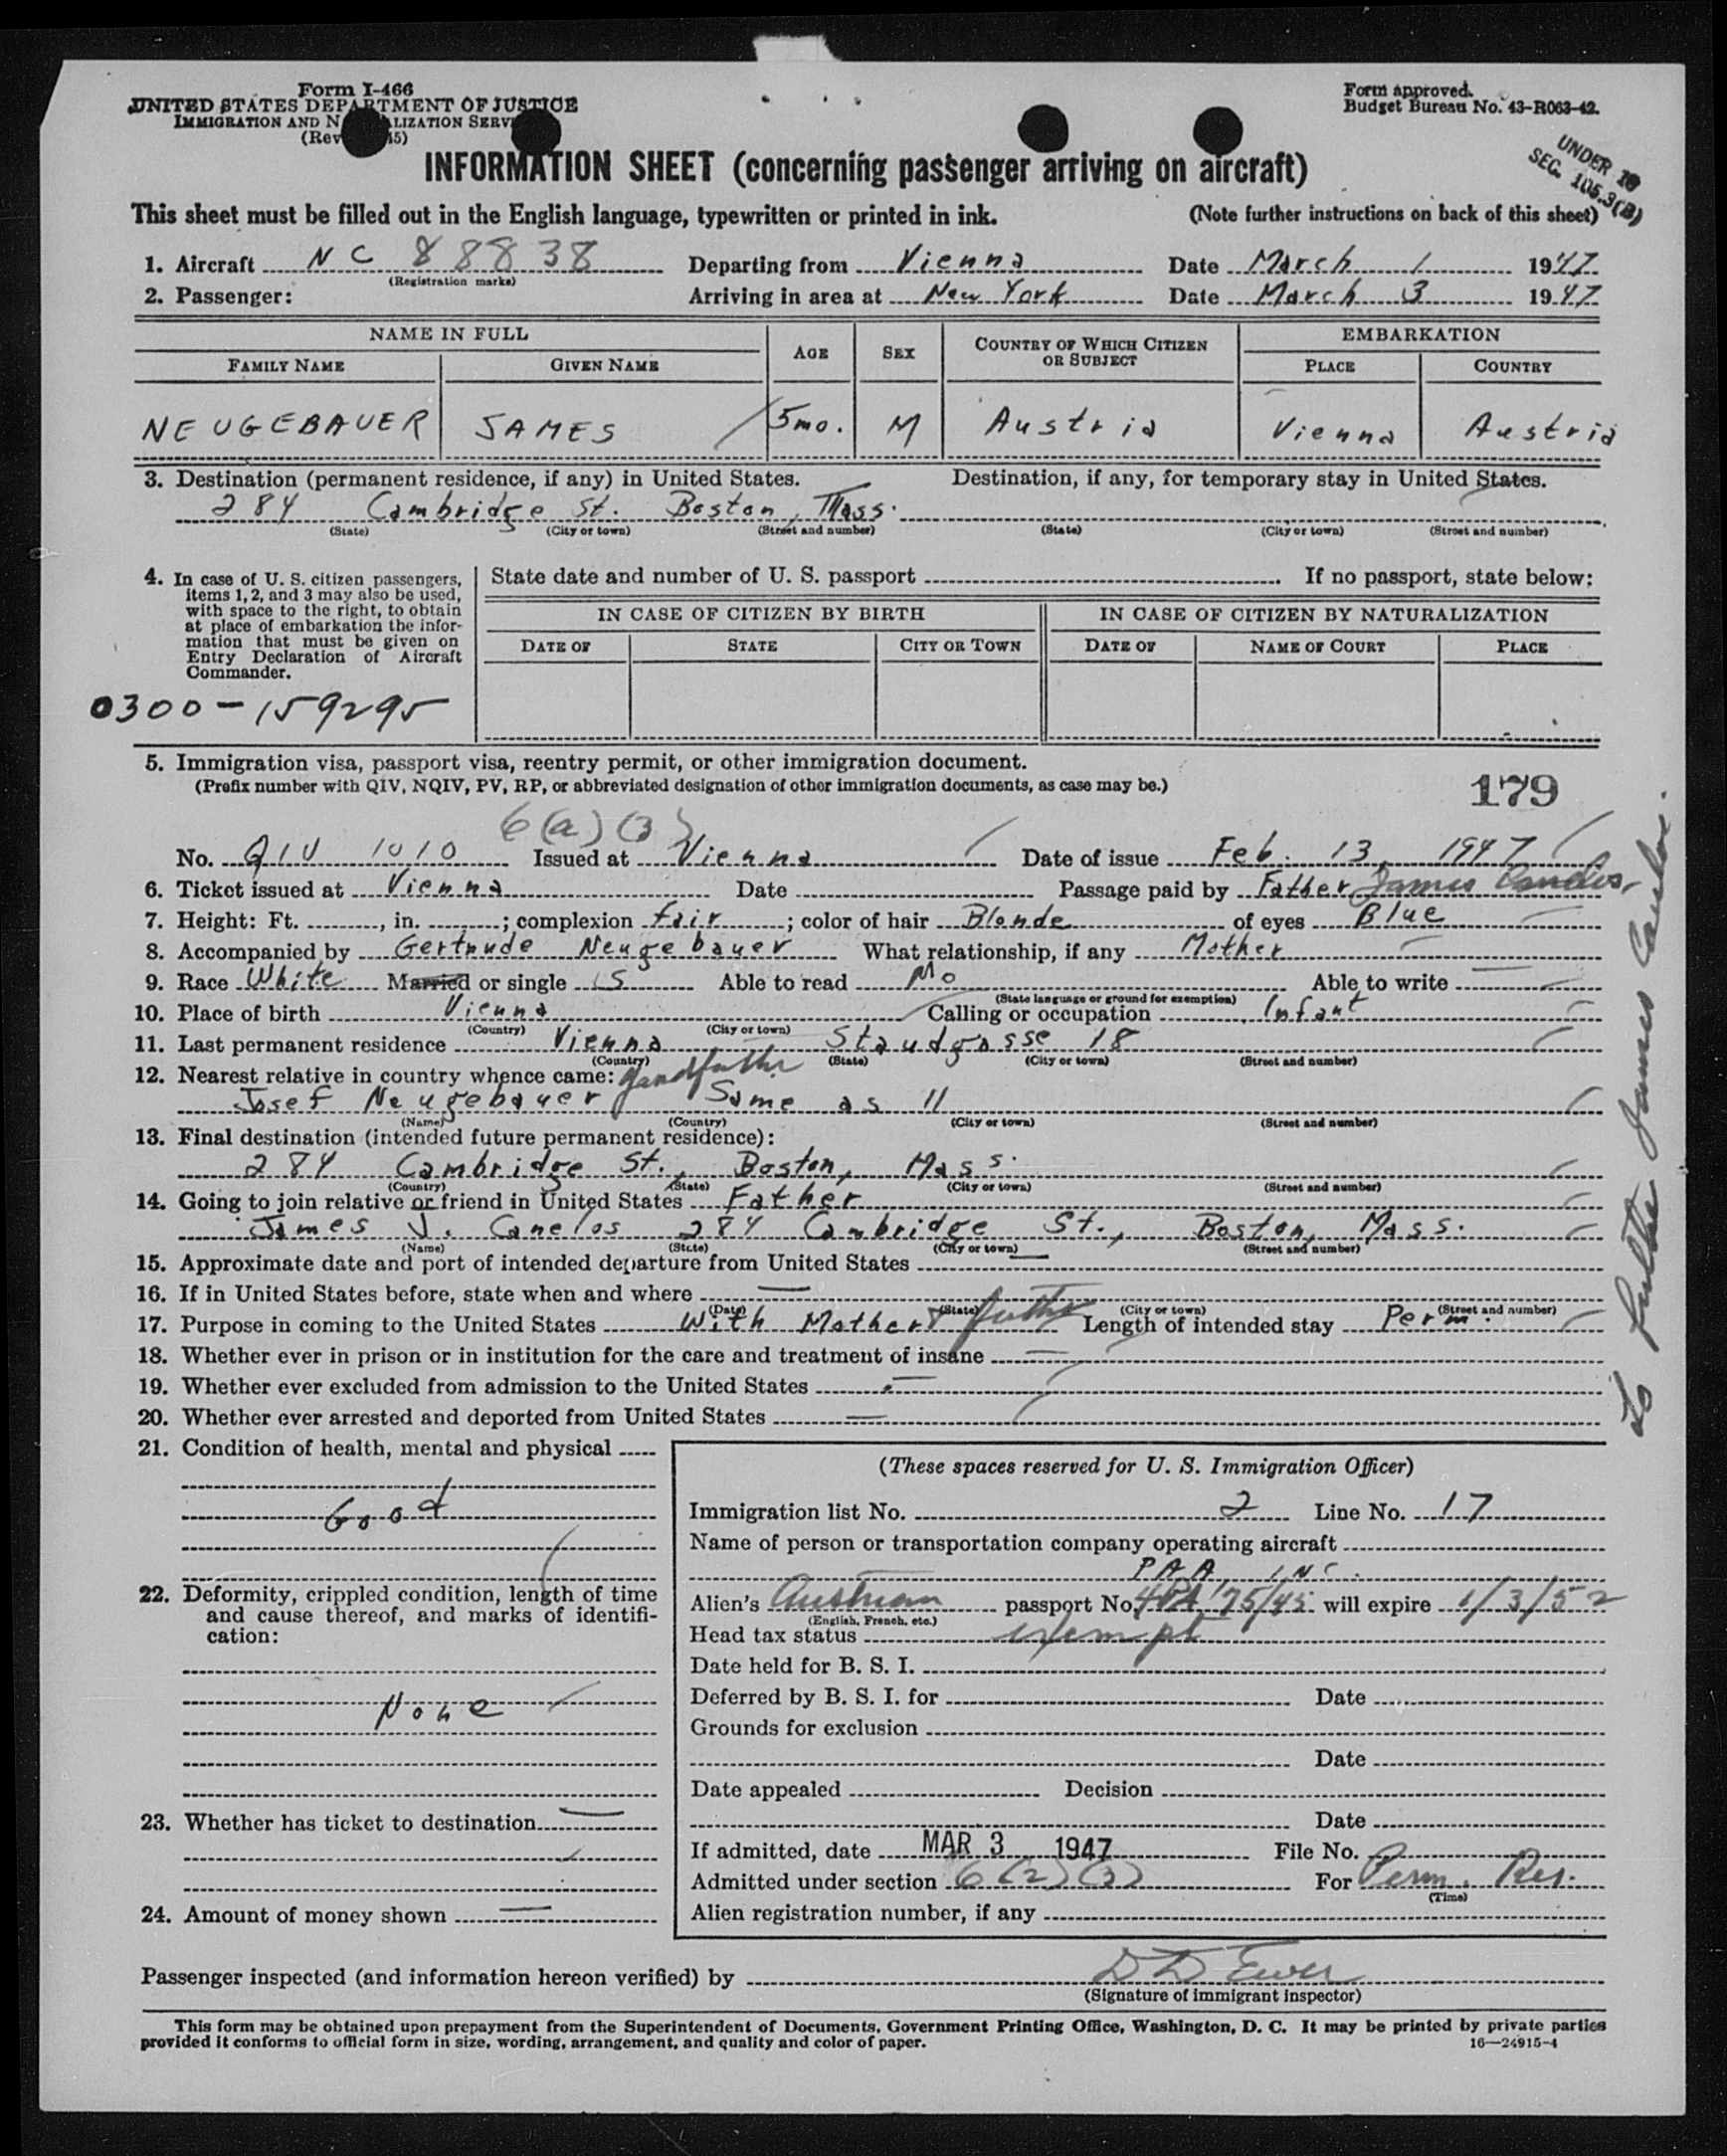 Form I-466
UNITED STATES DEPARTMENT OF JUSTICE
IMMIGRATION AND N LIZATION SERV
(Rev 45)
Form approved.
Budget Bureau No. 43-R063-42.
UNDER 16
SEC. 105.3(B)
INFORMATION SHEET (concerning passenger arriving on aircraft)
This sheet must be filled out in the English language, typewritten or printed in ink. (Note further instructions on back of this sheet)
1. Aircraft NC 88838 Departing from Vienna Date March 1 1947
(Registration marks)
2. Passenger: Arriving in area at New York Date March 3 1947
NAME IN FULL AGE SEX COUNTRY OF WHICH CITIZEN OR SUBJECT EMBARKATION
FAMILY NAME GIVEN NAME PLACE COUNTRY
NEUGEBAUER JAMES 5mo. M Austria Vienna Austria
3. Destination (permanent residence, if any) in United States. Destination, if any, for temporary stay in United States.
284 Cambridge St. Boston, Mass.
(State) (City or town) (Street and number) (State) (City or town) (Street and number)
4. In case of U. S. citizen passengers,
items 1, 2, and 3 may also be used,
with space to the right, to obtain
at place of embarkation the infor-
mation that must be given on
Entry Declaration of Aircraft
Commander.
0300-159295
State date and number of U. S. passport If no passport, state below:
IN CASE OF CITIZEN BY BIRTH IN CASE OF CITIZEN BY NATURALIZATION
DATE OF STATE CITY OR TOWN DATE OF NAME OF COURT PLACE
5. Immigration visa, passport visa, reentry permit, or other immigration document.
(Prefix number with QIV, NQIV, PV, RP, or abbreviated designation of other immigration documents, as case may be.)
179
6(a)(3)
No. QIV 1010 Issued at Vienna Date of issue Feb. 13, 1947
6. Ticket issued at Vienna Date Passage paid by Father James Canelos
7. Height: Ft. , in. ; complexion fair ; color of hair Blonde of eyes Blue
8. Accompanied by Gertrude Neugebauer What relationship, if any Mother
9. Race White Married or single S Able to read No Able to write
(State language or ground for exemption)
10. Place of birth Vienna Calling or occupation Infant
(Country) (City or town)
11. Last permanent residence Vienna Staudgasse 18
(Country) (State) (City or town) (Street and number)
12. Nearest relative in country whence came: grandfather
Josef Neugebauer Same as 11
(Name) (Country) (City or town) (Street and number)
13. Final destination (intended future permanent residence):
284 Cambridge St., Boston, Mass.
(Country) (State) (City or town) (Street and number)
14. Going to join relative or friend in United States Father
James J. Canelos 284 Cambridge St., Boston, Mass.
(Name) (State) (City or town) (Street and number)
15. Approximate date and port of intended departure from United States
16. If in United States before, state when and where
(Date) (State) (City or town) (Street and number)
17. Purpose in coming to the United States With Mother & father Length of intended stay Perm.
18. Whether ever in prison or in institution for the care and treatment of insane
19. Whether ever excluded from admission to the United States
20. Whether ever arrested and deported from United States
to father James
21. Condition of health, mental and physical
Good
22. Deformity, crippled condition, length of time
and cause thereof, and marks of identifi-
cation:
None
23. Whether has ticket to destination
24. Amount of money shown
(These spaces reserved for U. S. Immigration Officer)
Immigration list No. 2 Line No. 17
Name of person or transportation company operating aircraft
PAA, INC.
Alien's Austrian passport No. 75/45 will expire 1/3/52
(English, French, etc.)
Head tax status exempt
Date held for B. S. I.
Deferred by B. S. I. for Date
Grounds for exclusion
Date
Date appealed Decision
Date
If admitted, date MAR 3 1947 File No.
Admitted under section 6(2)(3) For Perm. Res.
(Time)
Alien registration number, if any
Passenger inspected (and information hereon verified) by DD Ewer
(Signature of immigrant inspector)
This form may be obtained upon prepayment from the Superintendent of Documents, Government Printing Office, Washington, D. C. It may be printed by private parties
provided it conforms to official form in size, wording, arrangement, and quality and color of paper. 16—24915-4